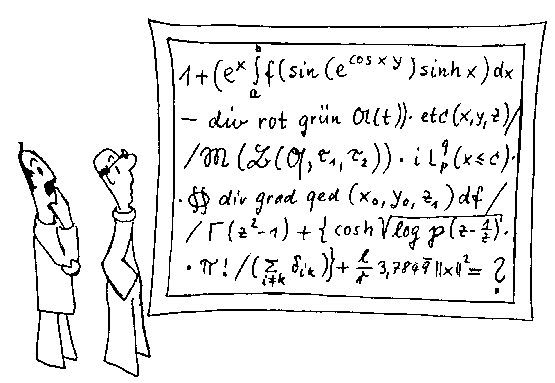 1+(e^x ∫_a^b f(sin(e^{cos x y}) sinh x) dx
− div rot grün 𝔄(t))· etc(x,y,z)/
/𝔐(𝔏(𝔄,τ₁,τ₂))·i L_p^q(x≤c)·
·∯ div grad qed (x₀,y₀,z₁)df/
/Γ(z²-1)+{cosh √(log p(z-1/z))·
·π!/(∑_{i≠k} δ_{ik})}+ l/1 3,7849̄ ||x||²= ?